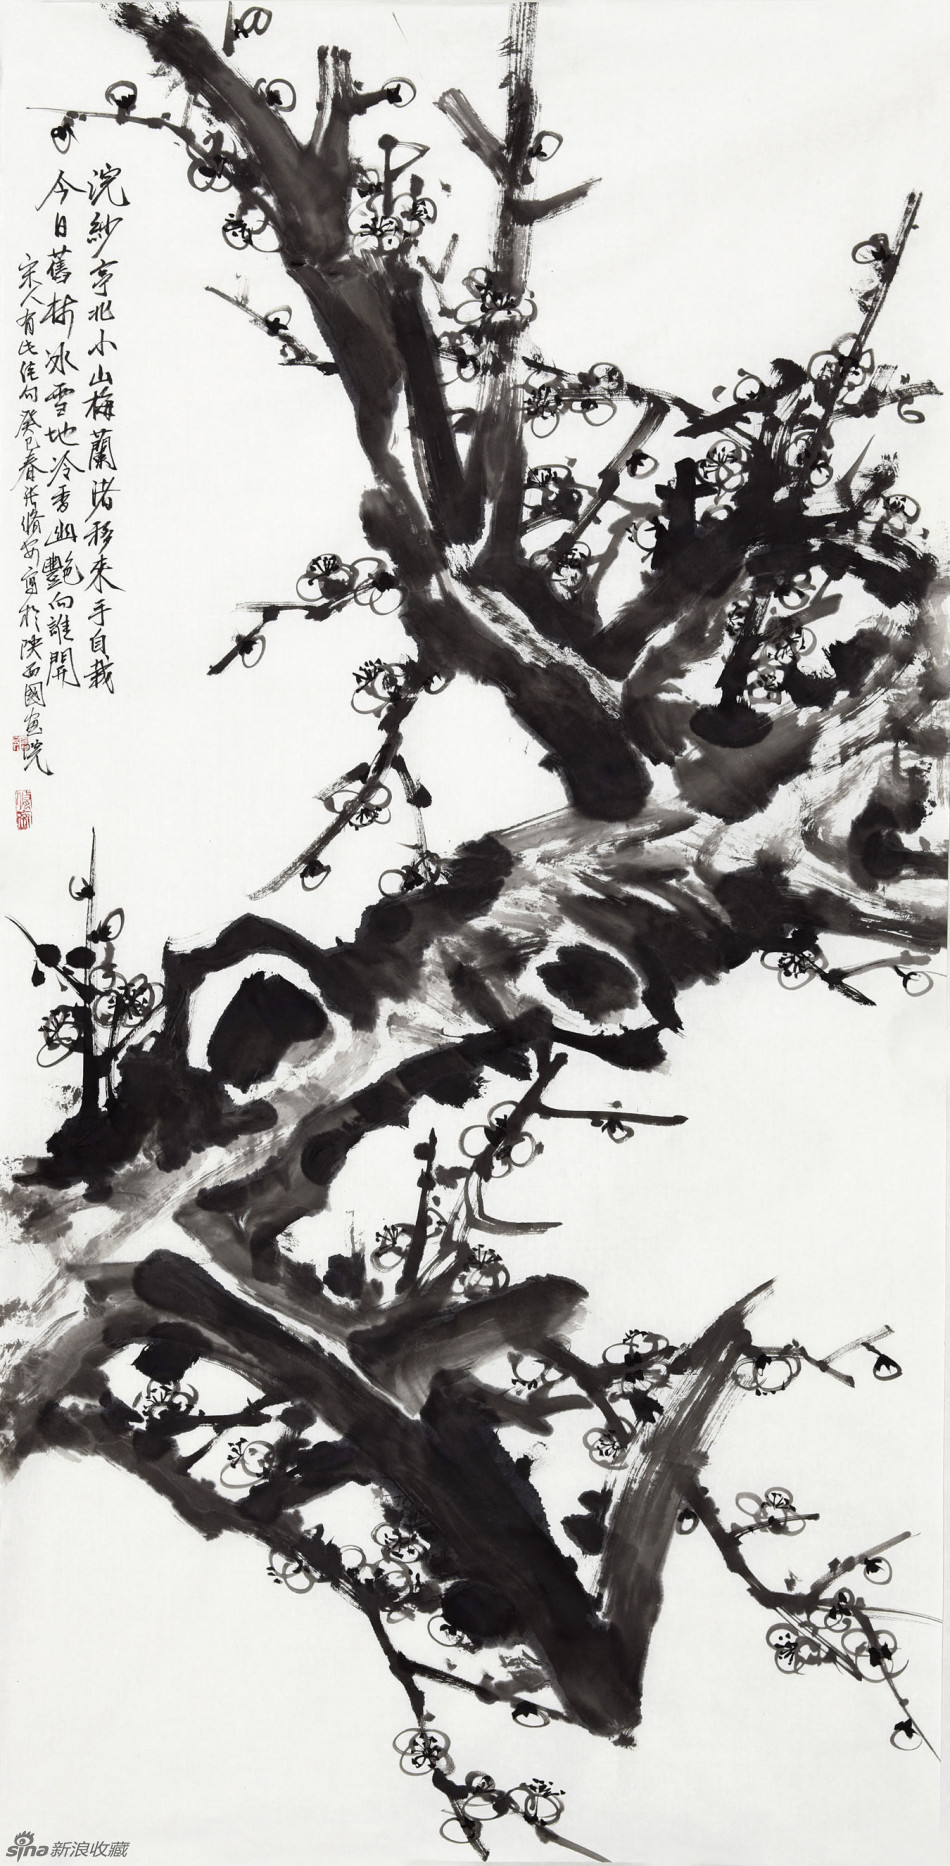 浣紗亭北小山梅蘭渚移來手自栽
今日舊林冰雪地冷香幽艷向誰開
宋人有此佳句癸巳春張脩安寫於陝西國畫院
sina新浪收藏